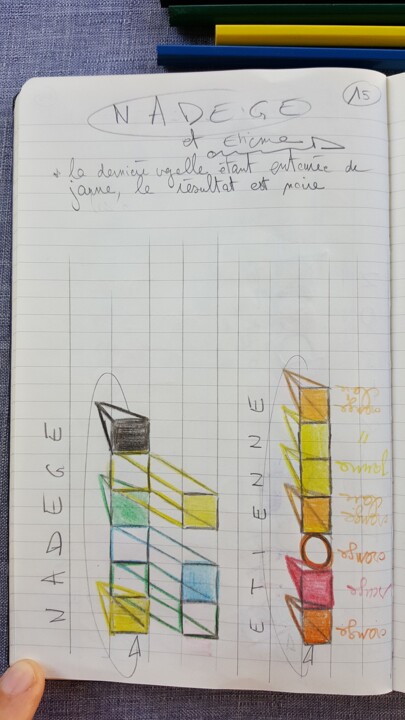 15
NADEGE
et Etienne
* la dernière voyelle étant entourée de
jaune, le résultat est noire
NADEGE
ETIENNE
orange
rouge
orange
orange clair
jaune
"
orange clair